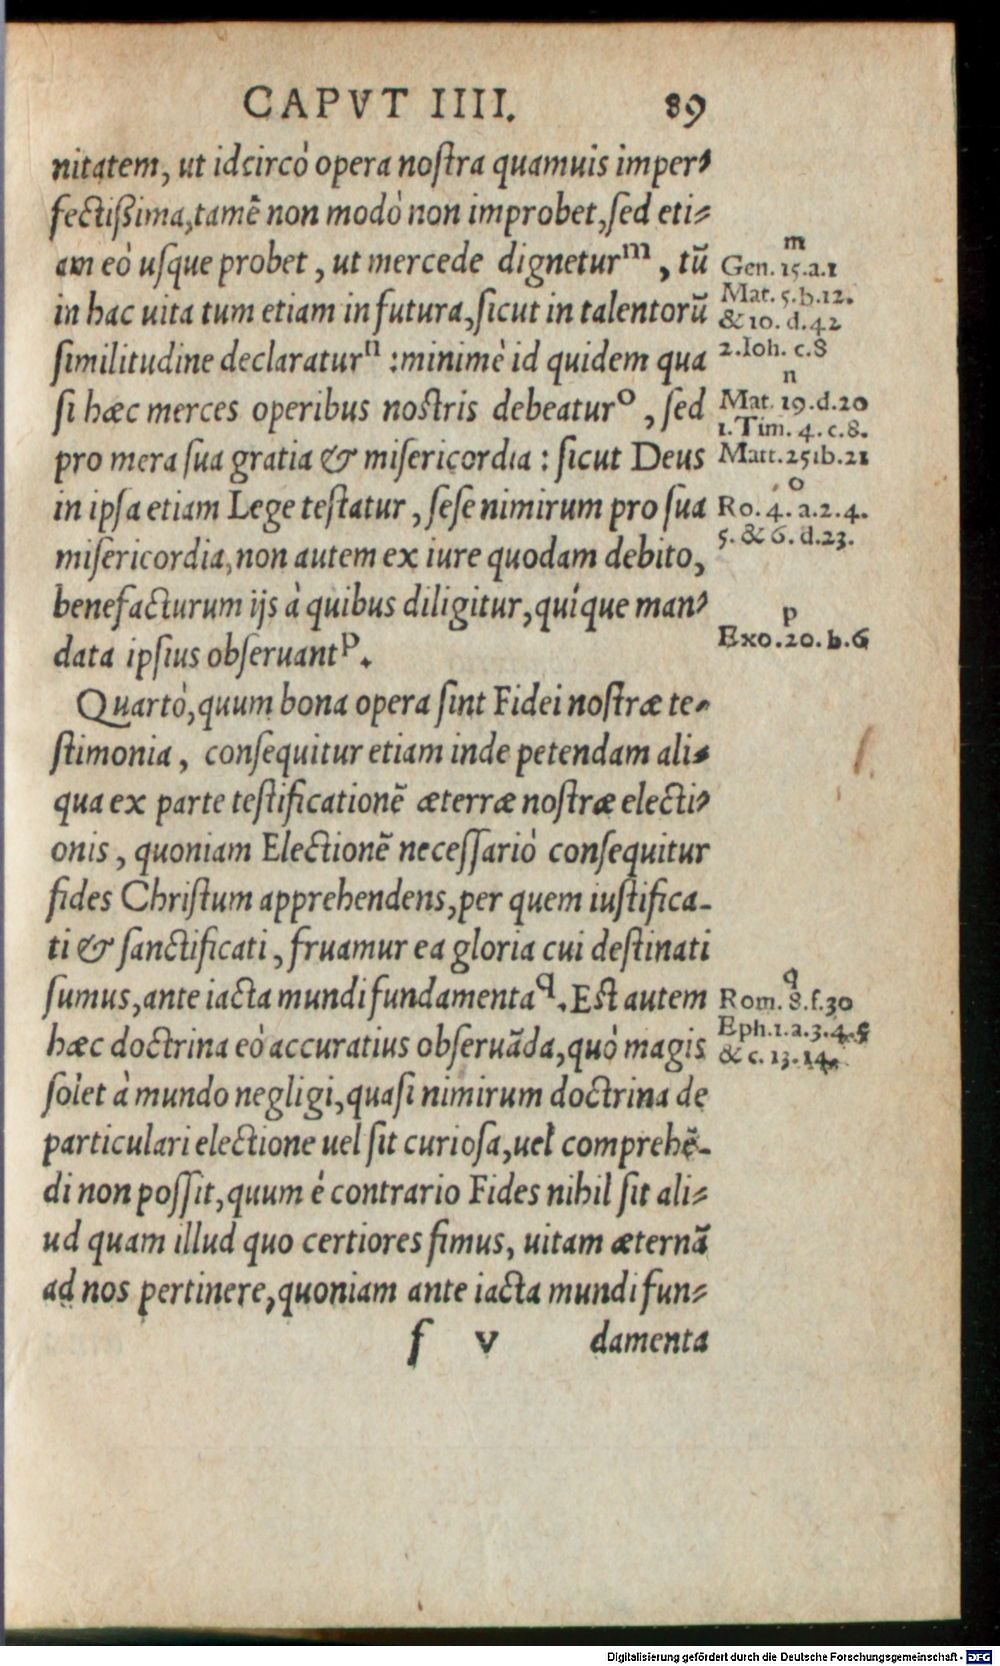 CAPVT IIII. 89
nitatem, ut idcircò opera noſtra quamuis imper-
fectißima, tamē non modò non improbet, ſed eti-
am eò uſque probet, ut mercede digneturᵐ, tū
in hac uita tum etiam in futura, ſicut in talentorū
ſimilitudine declaraturⁿ: minimè id quidem qua
ſi hæc merces operibus noſtris debeaturᵒ, ſed
pro mera ſua gratia & miſericordia: ſicut Deus
in ipſa etiam Lege teſtatur, ſeſe nimirum pro ſua
miſericordia, non autem ex iure quodam debito,
benefacturum ijs à quibus diligitur, quíque man-
data ipſius obſeruantᵖ.
Quartò, quum bona opera ſint Fidei noſtræ te-
ſtimonia, conſequitur etiam inde petendam ali-
qua ex parte teſtificationē æterræ noſtræ electi-
onis, quoniam Electionē neceſſariò conſequitur
fides Chriſtum apprehendens, per quem iuſtifica-
ti & ſanctificati, fruamur ea gloria cui deſtinati
ſumus, ante iacta mundi fundamenta q. Eſt autem
hæc doctrina eò accuratius obſeruāda, quò magis
ſolet à mundo negligi, quaſi nimirum doctrina de
particulari electione uel ſit curioſa, uel comprehē-
di non poſſit, quum è contrario Fides nihil ſit ali-
ud quam illud quo certiores fimus, uitam æternā
ad nos pertinere, quoniam ante iacta mundi fun-
f v damenta
m
Gen. 15.a.1
Mat. 5.b.12.
& 10. d.42
2.Ioh. c.8
n
Mat. 19.d.20
1.Tim. 4.c.8.
Matt.251b.21
o
Ro. 4. a.2.4.
5. & 6. d.23.
p
Exo.20.b.6
q
Rom. 8.f.30
Eph.1.a.3.4.5
& c. 13.14.
Digitalisierung gefördert durch die Deutsche Forschungsgemeinschaft - DFG